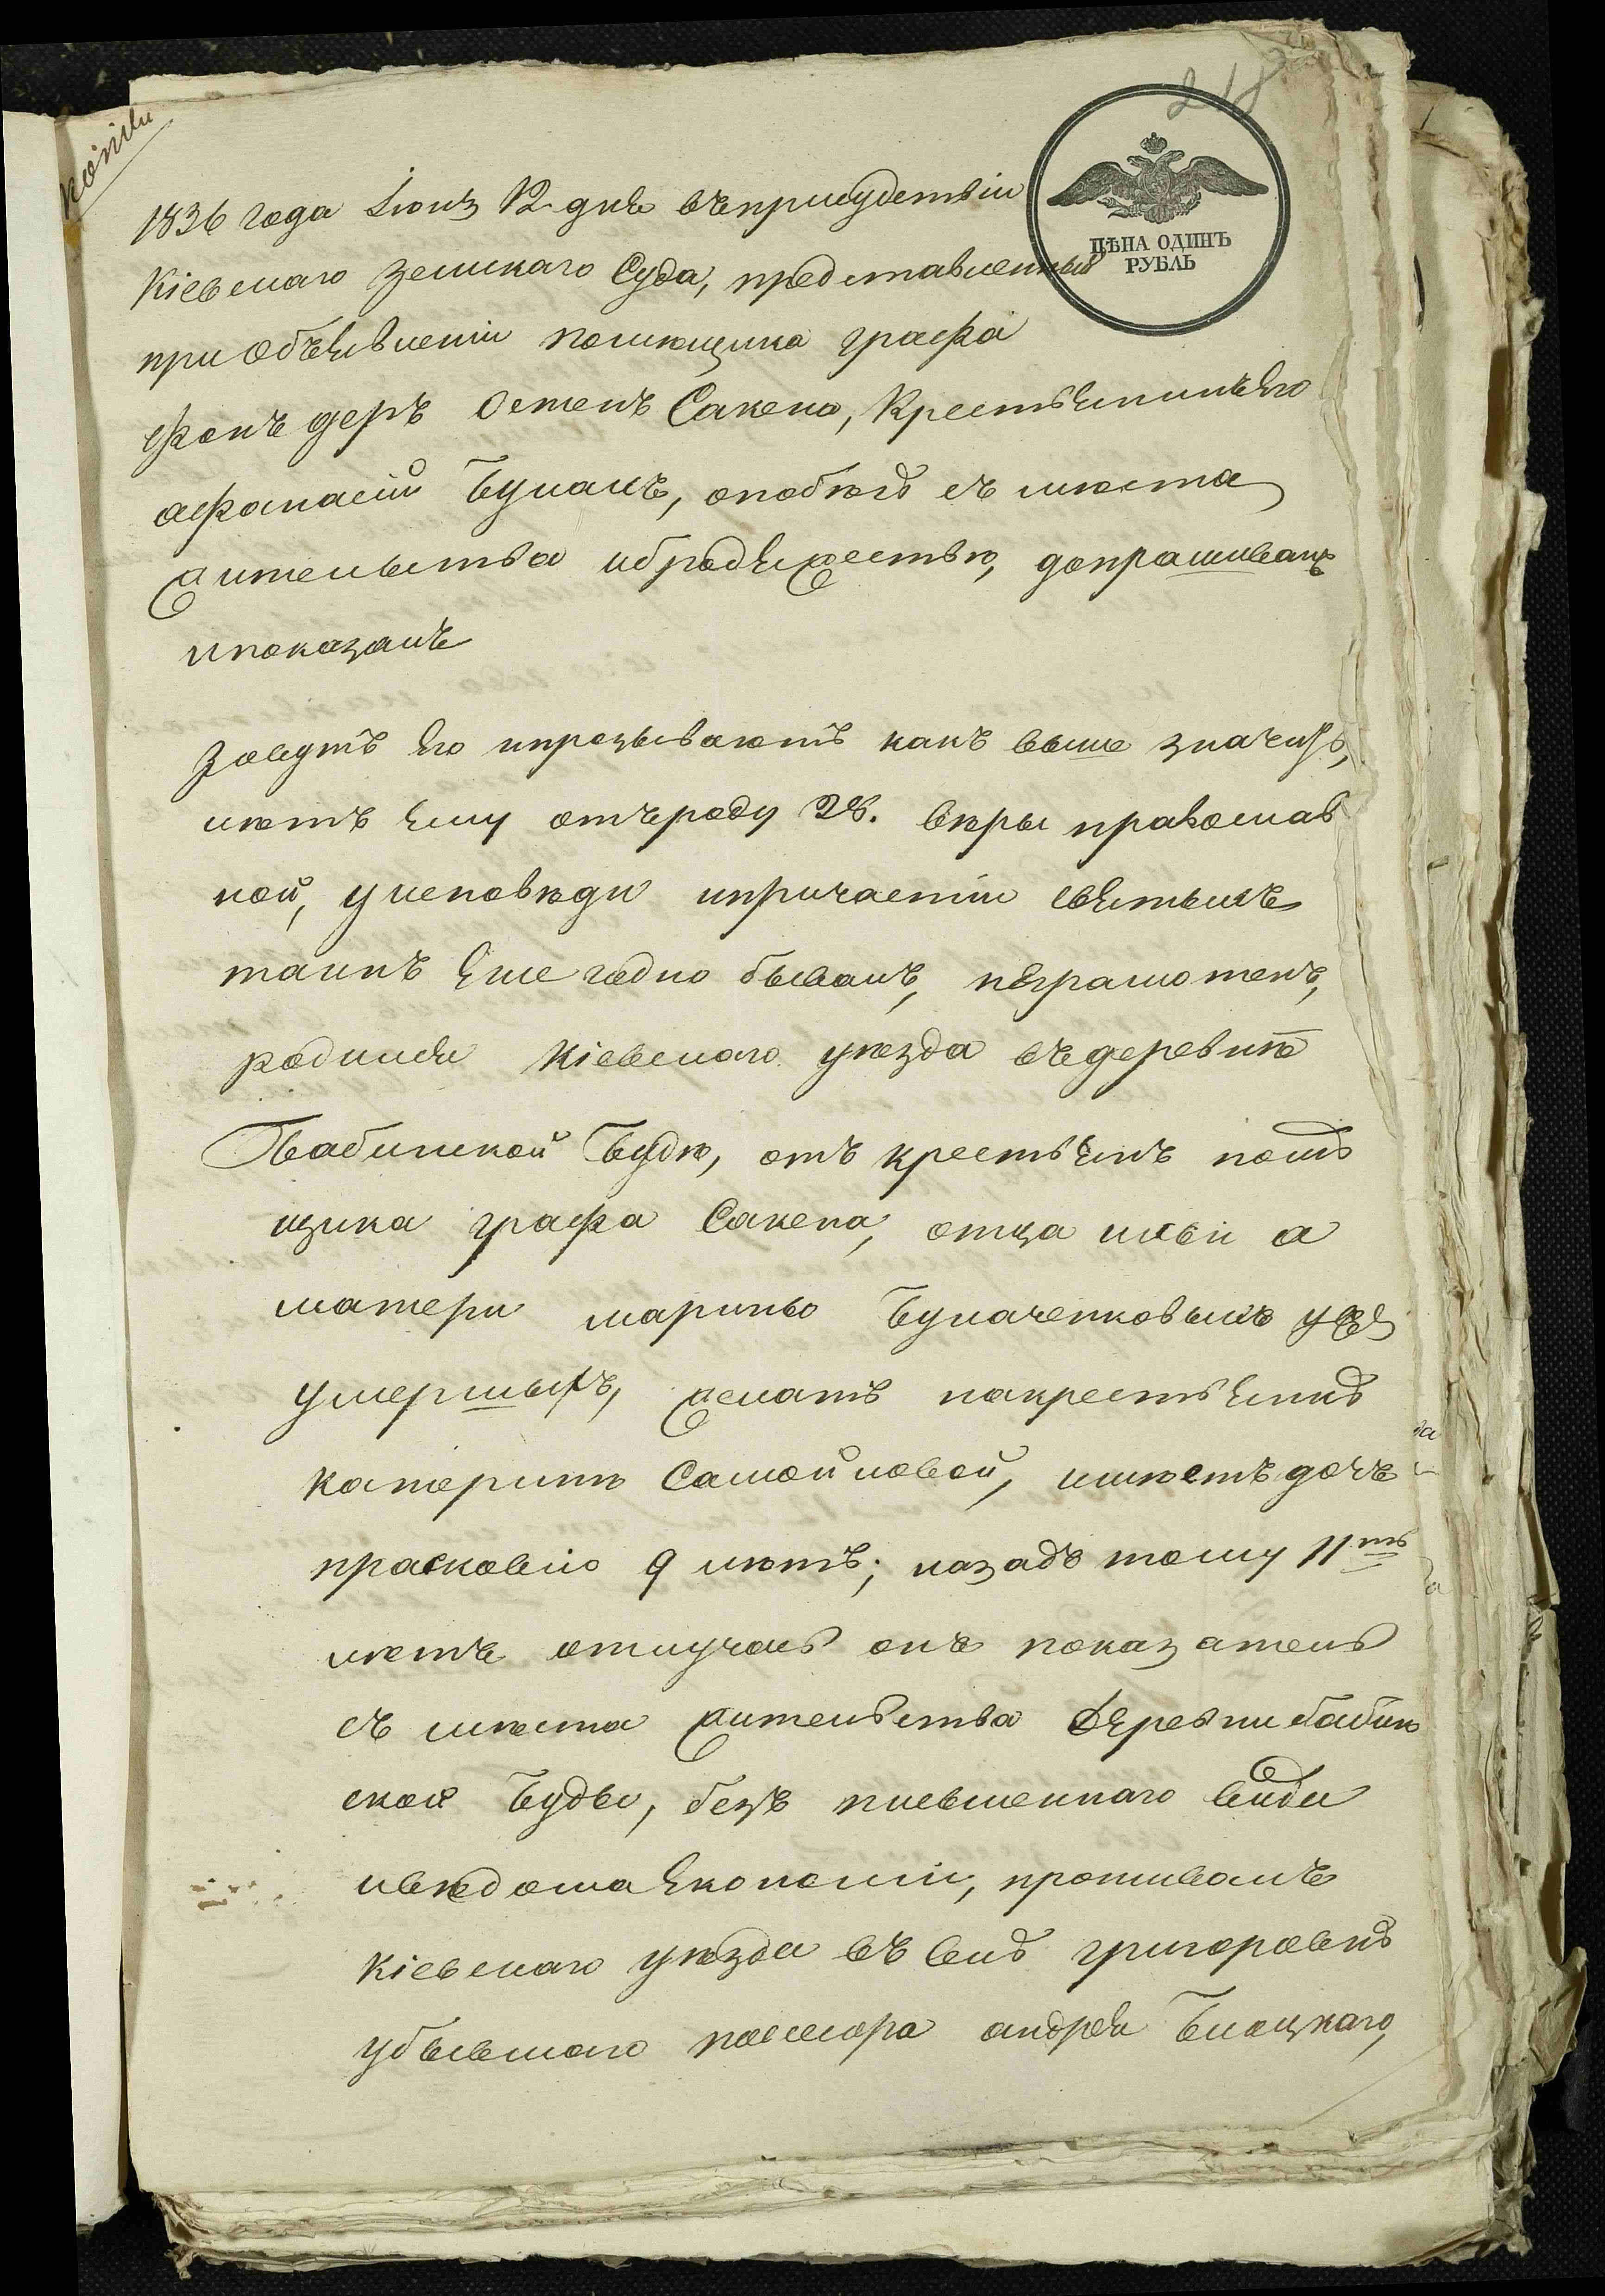 копия
218
ЦѢНА ОДИНЪ
РУБЛЬ
1836 года Іюня 12 дня въприсудствіи
Кіевскаго Земскаго Суда, представленный
при Объявленіи помещика графа
фонъ деръ Остенъ Сакена, КрестьянинъЕго
афанасій Букачъ, опобѣгѣ съ мѣста
жительства ибродяжествѣ, допрашиванъ
ипоказалъ
Зовутъ Его ипрозываютъ какъ выше значитъ,
лѣтъ Ему отъроду 38. вѣры православ
ной, уисповѣди ипричастіи святыхъ
таинъ Ежегодно бывалъ, неграмотенъ,
родился Кіевскаго уезда въдеревнѣ
Бабинской Будѣ, отъ крестьянъ помѣ
щика графа Сакена, отца ильи а
матери марины Букаченковыхъ уже
умершыхъ, женатъ накрестьянкѣ
катеринѣ Самойловой, имѣетъ дочь
прасковію 9 лѣтъ; назадъ тому 11ть
лѣтъ отлучась онъ показатель
съ мѣста жительства деревни бабин
ской Буды, безъ письменнаго вида
иведома Економіи, проживалъ
Кіевскаго уезда въ селѣ григоровкѣ
убывшаго посесора андрея